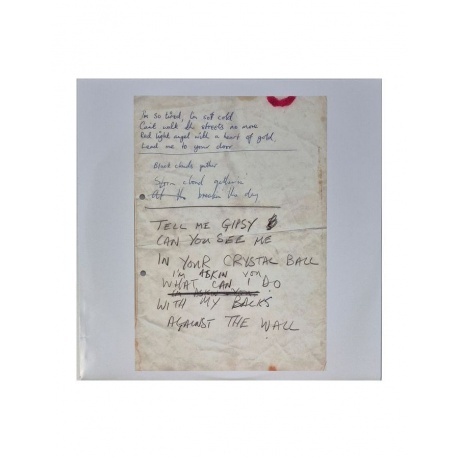 I'm so tired, I'm cold cold
Can't walk the streets no more
Red light angel with a heart of gold,
Lead me to your door
Black clouds gather
Storm cloud gatherin
At the break the day
TELL ME GIPSY
CAN YOU SEE ME
IN YOUR CRYSTAL BALL
I'M ASKIN YOU
WHAT CAN I DO
I'M ASKIN YOU
WITH MY BACKS
AGAINST THE WALL